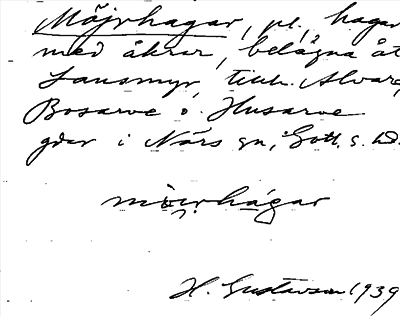 Möjrhagar, pl. hagar
med åkrar, belägna åt
Lausmyr, tillh. Alvare,
Bosarve o. Husarve
gdar i När sn, Gotl. s. hd.
H. Gustavson 1939